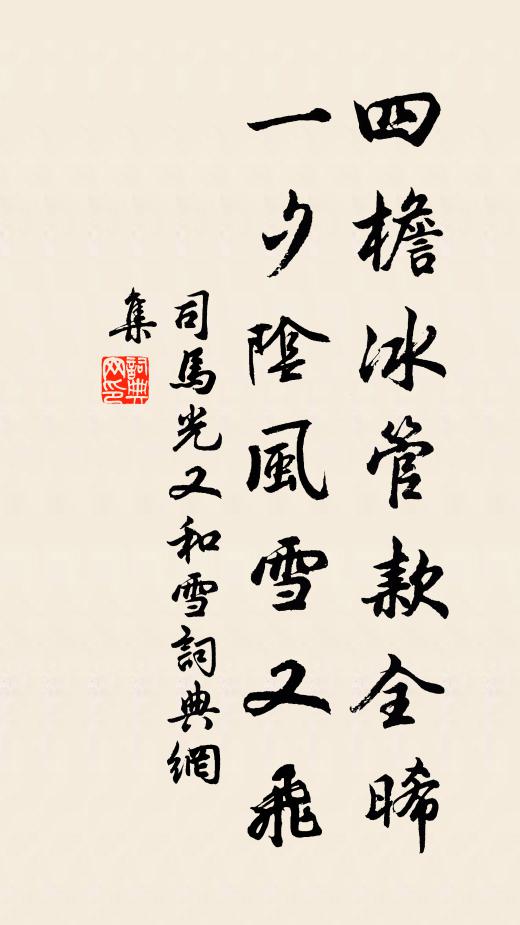 四檐冰管款全晞
一夕陰風雪又飛
司馬光又和雪詞典網
集
詞典
网印